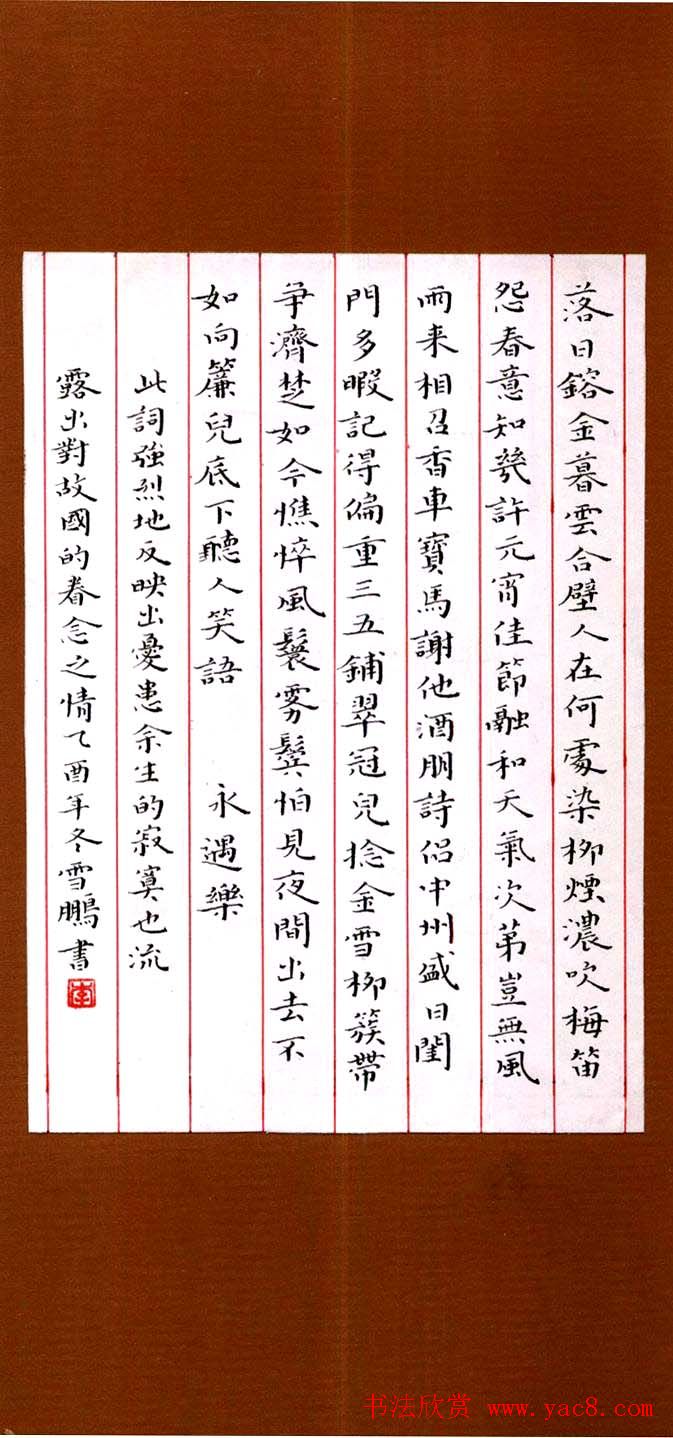 落日鎔金暮雲合壁人在何處染柳煙濃吹梅笛
怨春意知幾許元宵佳節融和天氣次第豈無風
雨来相召香車寶馬謝他酒朋詩侣中州盛日閨
門多暇記得偏重三五鋪翠冠兒捻金雪柳簇帶
争濟楚如今憔悴風鬟雾鬓怕見夜間出去不
如向簾兒底下聽人笑語 永遇樂
此詞強烈地反映出憂患余生的寂寞也流
露出對故國的眷念之情乙酉年冬雪鵬書
李
书法欣赏 www.yac8.com